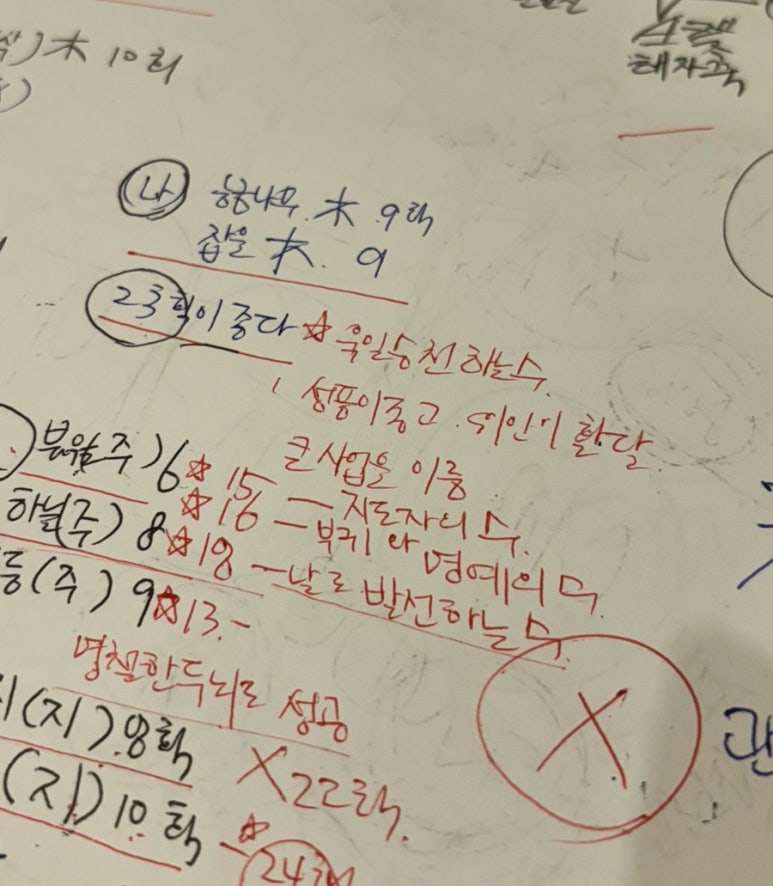 木 10획
태자귀
나
木 9획
잡을 木. 9
23획이 좋다 ☆ 욱일승천하는수
성품이좋고. 위인이 활달
큰사업을 이룸
(주) 6 ☆ 15 — 지도자의 수.
하늘(주) 8 ☆ 16 — 부귀와 명예의 수.
등(주) 9 ☆ 18 — 날로 발전하는 수.
☆ 13. -
명철한두뇌로 성공
X
(지) 8획 X 22획.
(지) 10획 - ☆ 24획